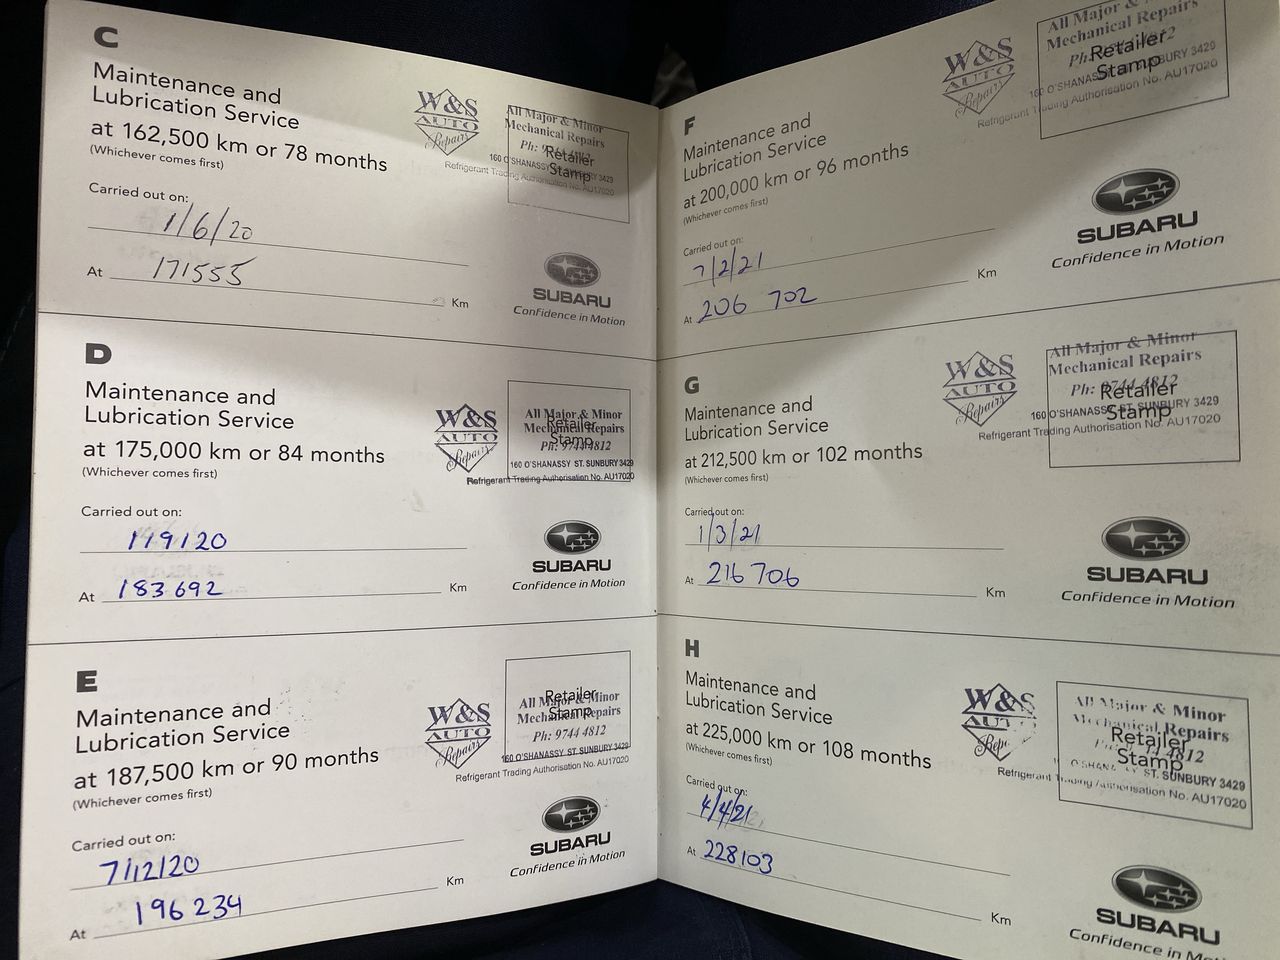 C
Maintenance and
Lubrication Service
at 162,500 km or 78 months
(Whichever comes first)
W&S
AUTO
Repairs
All Major & Minor
Mechanical Repairs
Retailer
Stamp
160 O'SHANASSY ST. SUNBURY 3429
Refrigerant Trading Authorisation No. AU17020
Carried out on:
1/6/20
At 171555 Km
SUBARU
Confidence in Motion
D
Maintenance and
Lubrication Service
at 175,000 km or 84 months
(Whichever comes first)
W&S
AUTO
Repairs
All Major & Minor
Mechanical Repairs
Ph: 9744 4812
Retailer
Stamp
160 O'SHANASSY ST. SUNBURY 3429
Refrigerant Trading Authorisation No. AU17020
Carried out on:
1/9/20
At 183 692 Km
SUBARU
Confidence in Motion
E
Maintenance and
Lubrication Service
at 187,500 km or 90 months
(Whichever comes first)
W&S
AUTO
Repairs
All Major & Minor
Mechanical Repairs
Ph: 9744 4812
Retailer
Stamp
160 O'SHANASSY ST. SUNBURY 3429
Refrigerant Trading Authorisation No. AU17020
Carried out on:
7/12/20
At 196 234 Km
SUBARU
Confidence in Motion
F
Maintenance and
Lubrication Service
at 200,000 km or 96 months
(Whichever comes first)
W&S
AUTO
Repairs
All Major & Minor
Mechanical Repairs
Retailer
Stamp
160 O'SHANASSY ST. SUNBURY 3429
Refrigerant Trading Authorisation No. AU17020
Carried out on:
7/2/21
At 206 702 Km
SUBARU
Confidence in Motion
G
Maintenance and
Lubrication Service
at 212,500 km or 102 months
(Whichever comes first)
W&S
AUTO
Repairs
All Major & Minor
Mechanical Repairs
Ph: 9744 4812
Retailer
Stamp
160 O'SHANASSY ST. SUNBURY 3429
Refrigerant Trading Authorisation No. AU17020
Carried out on:
1/3/21
At 216 706 Km
SUBARU
Confidence in Motion
H
Maintenance and
Lubrication Service
at 225,000 km or 108 months
(Whichever comes first)
W&S
All Major & Minor
Mechanical Repairs
Retailer
Stamp
ST. SUNBURY 3429
Refrigerant Trading Authorisation No. AU17020
Carried out on:
4/4/21
At 228103 Km
SUBARU
Confidence in Motion